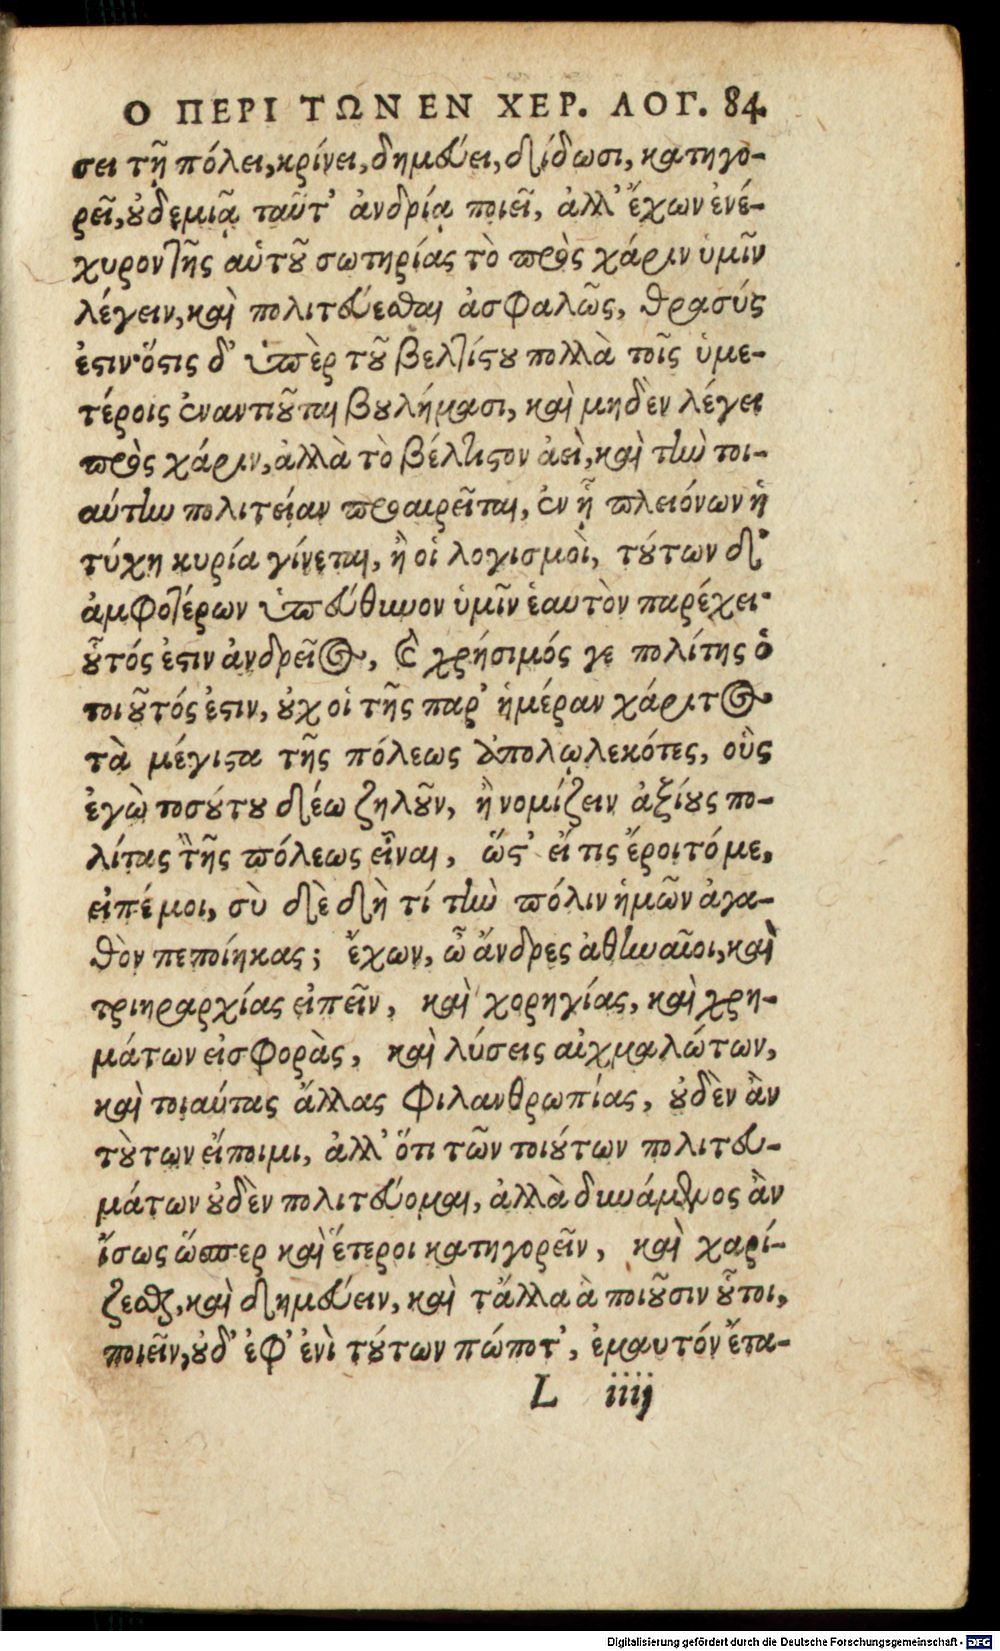 Ο ΠΕΡΙ ΤΩΝ ΕΝ ΧΕΡ. ΛΟΓ. 84.
σει τῇ πόλει, κρίνει, δημεύει, δίδωσι, κατηγο-
ρεῖ, οὐδεμιᾷ ταῦτ' ἀνδρίᾳ ποιεῖ, ἀλλ' ἔχων ἐνέ-
χυρον τῆς αὑτοῦ σωτηρίας τὸ πρὸς χάριν ὑμῖν
λέγειν, καὶ πολιτεύεσθαι ἀσφαλῶς, θρασύς
ἐστιν· ὅστις δ' ὑπὲρ τοῦ βελτίστου πολλὰ τοῖς ὑμε-
τέροις ἐναντιοῦται βουλήμασι, καὶ μηδὲν λέγει
πρὸς χάριν, ἀλλὰ τὸ βέλτιστον ἀεὶ, καὶ τὴν τοι-
αύτην πολιτείαν προαιρεῖται, ἐν ᾗ πλειόνων ἡ
τύχη κυρία γίνεται, ἢ οἱ λογισμοὶ, τούτων δ'
ἀμφοτέρων ὑπεύθυνον ὑμῖν ἑαυτὸν παρέχει·
οὗτός ἐστιν ἀνδρεῖος, καὶ χρήσιμός γε πολίτης ὁ
τοιοῦτός ἐστιν, οὐχ οἱ τῆς παρ' ἡμέραν χάριτος
τὰ μέγιστα τῆς πόλεως ἀπολωλεκότες, οὓς
ἐγὼ τοσούτου δέω ζηλοῦν, ἢ νομίζειν ἀξίους πο-
λίτας τῆς πόλεως εἶναι, ὥστ' εἴ τις ἔροιτό με,
εἰπέ μοι, σὺ δὲ δὴ τί τὴν πόλιν ἡμῶν ἀγα-
θὸν πεποίηκας; ἔχων, ὦ ἄνδρες ἀθηναῖοι, καὶ
τριηραρχίας εἰπεῖν, καὶ χορηγίας, καὶ χρη-
μάτων εἰσφορὰς, καὶ λύσεις αἰχμαλώτων,
καὶ τοιαύτας ἄλλας φιλανθρωπίας, οὐδὲν ἂν
τούτων εἴποιμι, ἀλλ' ὅτι τῶν τοιούτων πολιτευ-
μάτων οὐδὲν πολιτεύομαι, ἀλλὰ δυνάμενος ἂν
ἴσως ὥσπερ καὶ ἕτεροι κατηγορεῖν, καὶ χαρί-
ζεσθαι, καὶ δημεύειν, καὶ τἄλλα ἃ ποιοῦσιν οὗτοι,
ποιεῖν, οὐδ' ἐφ' ἑνὶ τούτων πώποτ', ἐμαυτόν ἔτα-
L iiij
Digitalisierung gefördert durch die Deutsche Forschungsgemeinschaft - DFG